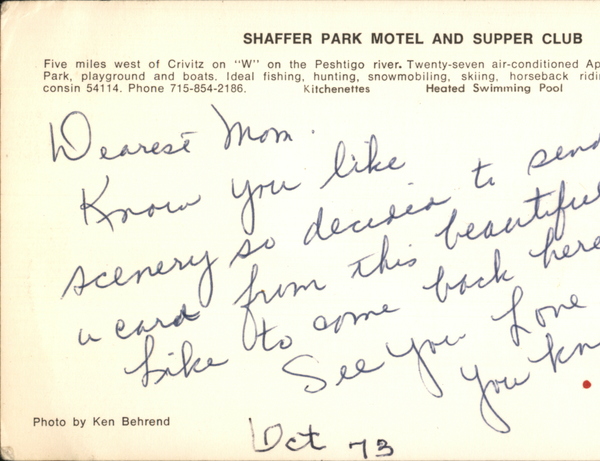 SHAFFER PARK MOTEL AND SUPPER CLUB
Five miles west of Crivitz on "W" on the Peshtigo river. Twenty-seven air-conditioned Ap
Park, playground and boats. Ideal fishing, hunting, snowmobiling, skiing, horseback ridi
consin 54114. Phone 715-854-2186. Kitchenettes Heated Swimming Pool
Dearest Mom.
Know you like
scenery so decided to send
a card from this beautiful
Like to come back here
See You Love
You kn
Photo by Ken Behrend
Oct 73